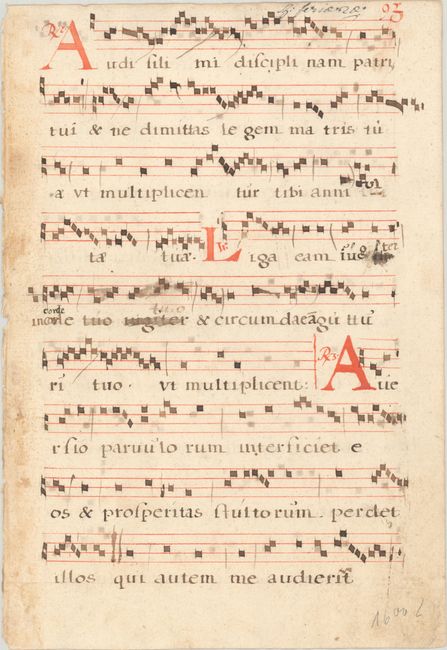 23
Audi fili mi discipli nam patri,
tui & ne dimittas legem ma tris tu
a vt multiplicen tur tibi anni
tæ tuæ. Liga eam
in corde tuo & circum da
ri tuo. vt multiplicent: Aue
rsio paruulo rum interficiet e
os & prosperitas stultorum. perdet
illos qui autem me audierit
1600